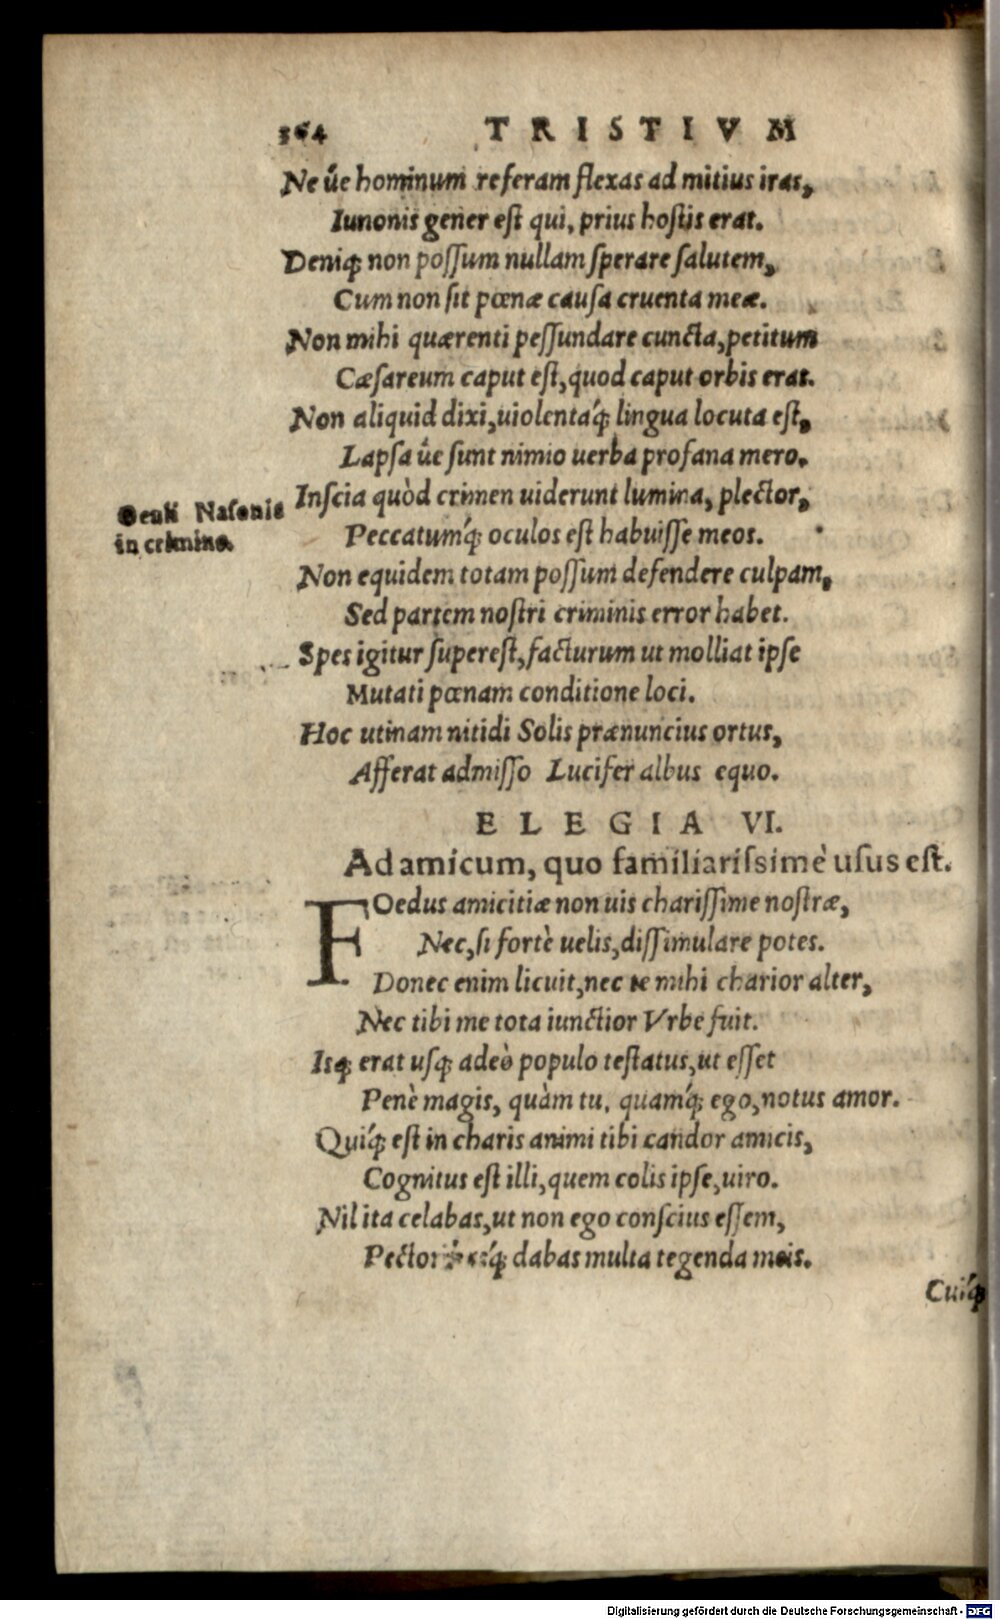 364 TRISTIVM
Ne ûe hominum referam flexas ad mitius iras,
Iunonis gener est qui, prius hostis erat.
Deniq; non possum nullam sperare salutem,
Cum non sit pœnæ causa cruenta meæ.
Non mihi quærenti pessundare cuncta, petitum
Cæsareum caput est, quod caput orbis erat.
Non aliquid dixi, uiolentáq; lingua locuta est,
Lapsa ûe sunt nimio uerba profana mero.
Inscia quòd crimen uiderunt lumina, plector,
Oculi Nasonis
in crimine.
Peccatumq́; oculos est habuisse meos.
Non equidem totam possum defendere culpam,
Sed partem nostri criminis error habet.
Spes igitur superest, facturum ut molliat ipse
Mutati pœnam conditione loci.
Hoc utinam nitidi Solis prænuncius ortus,
Afferat admisso Lucifer albus equo.
ELEGIA VI.
Ad amicum, quo familiarissimè usus est.
FOedus amicitiæ non uis charissime nostræ,
Nec, si fortè uelis, dissimulare potes.
Donec enim licuit, nec te mihi charior alter,
Nec tibi me tota iunctior Vrbe fuit.
Isq; erat usq; adeò populo testatus, ut esset
Penè magis, quàm tu, quamq́; ego, notus amor.
Quiq́; est in charis animi tibi candor amicis,
Cognitus est illi, quem colis ipse, uiro.
Nil ita celabas, ut non ego conscius essem,
dabas multa tegenda meis.
Cuiq́;
Digitalisierung gefördert durch die Deutsche Forschungsgemeinschaft - DFG